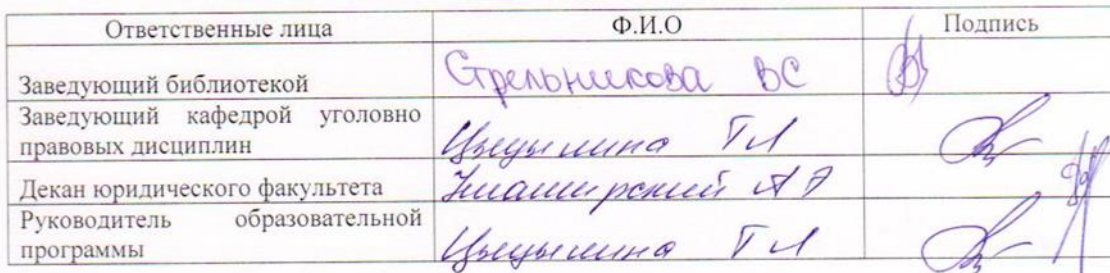 Ответственные лица Ф.И.О Подпись
Заведующий библиотекой Стрельникова ВС
Заведующий кафедрой уголовно
правовых дисциплин ТЛ
Декан юридического факультета
Руководитель образовательной
программы ТЛ